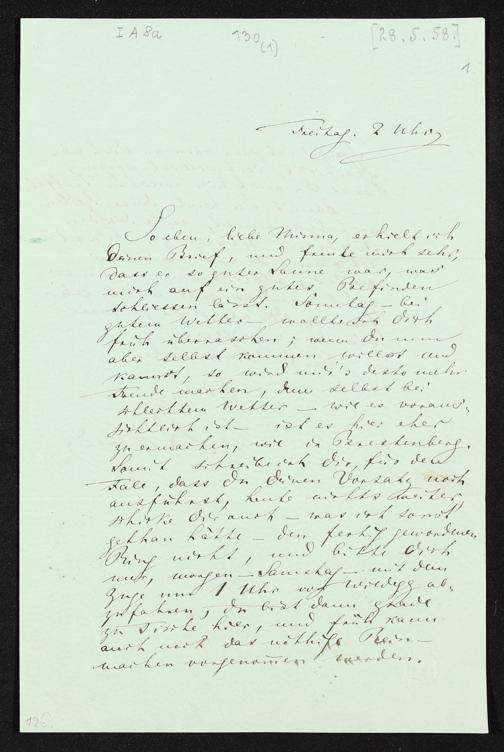 I A 8a 130 (1) [28. 5. 58.]
1
Freitag. 2 Uhr
So eben, liebe Minna, erhielt ich
Deinen Brief, und freute mich sehr,
dass er so guter Laune war, was
mich auf ein gutes Befinden
schliessen lässt. Sonntag – bei
gutem Wetter – wollte ich Dich
früh überraschen; wenn Du nun
aber selbst kommen willst und
kannst, so wird mir's desto mehr
Freude machen, denn selbst bei
schlechtem Wetter – wie es voraus-
sichtlich ist – ist es hier eher
zu ermachen, wie in Brestenberg.
Somit schreibe ich Dir, für den
Fall, dass Du Deinen Vorsatz noch
ausführst, heute nichts weiter,
schicke Dir auch – was ich sonst
gethan hätte – den fertig gewordenen
Ring nicht, und bitte Dich
nur, morgen – Samstag – mit dem
Zuge um 1 Uhr von Wildegg ab-
zufahren; Du bist dann grade
zu Tische hier, und früh kann
auch noch das nöthige Rein-
machen vorgenommen werden.
126.